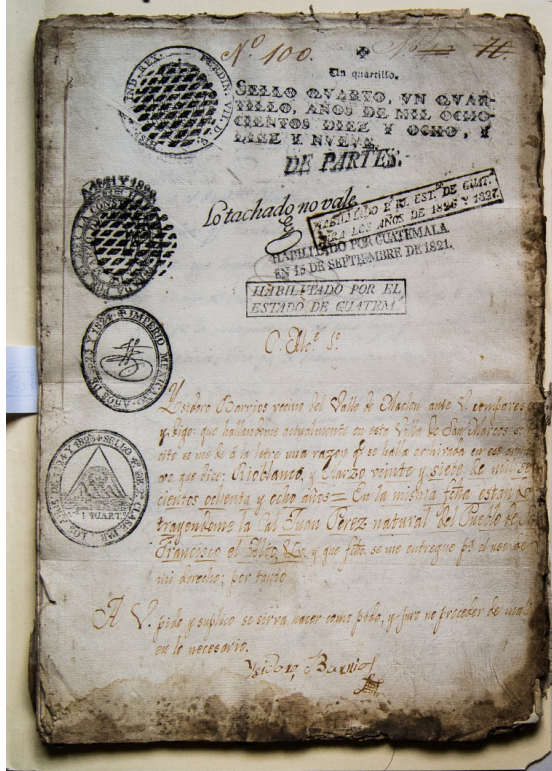 Nº 100.
Un quartillo.
SELLO QVARTO, VN QVAR-
TILLO, AÑOS DE MIL OCHO-
CIENTOS DIEZ Y OCHO, Y
DIEZ Y NUEVE.
DE PARTES.
FERDIN. VII. D. G.
IND. REX.
Lo tachado no vale
HABILITADO P. EL ESTº DE GUAT.
PARA LOS AÑOS DE 1826 Y 1827.
HABILITADO POR GUATEMALA
EN 15 DE SEPTIEMBRE DE 1821.
HABILITADO POR EL
ESTADO DE GUATEMª
1821 Y 1822
IMPERIO MEXICANO AÑOS DE 1823 Y 1824
1824 Y 1825 SELLO
1 QUART.
C. Alcº 1º
Ysidoro Barrios vecino del Valle de ante V. comparesco
y digo: que hallandome actualmente en esta Villa de San Marcos
se me dé á la letra una razon qº se halla archivada en ese
vo que dice: Rioblanco, y Marzo veinte y siete de mil se
cientos ochenta y ocho años = En la misma fecha estando
trayendome la Cal Juan Perez natural del Pueblo de
Francisco el Alto, &c. y que fho. se me entregue pª el uso de
mi derecho; por tanto
A V. pido y suplico se sirva hacer como pido, y juro no proceder de
en lo necesario.
Ysidoro Barrios